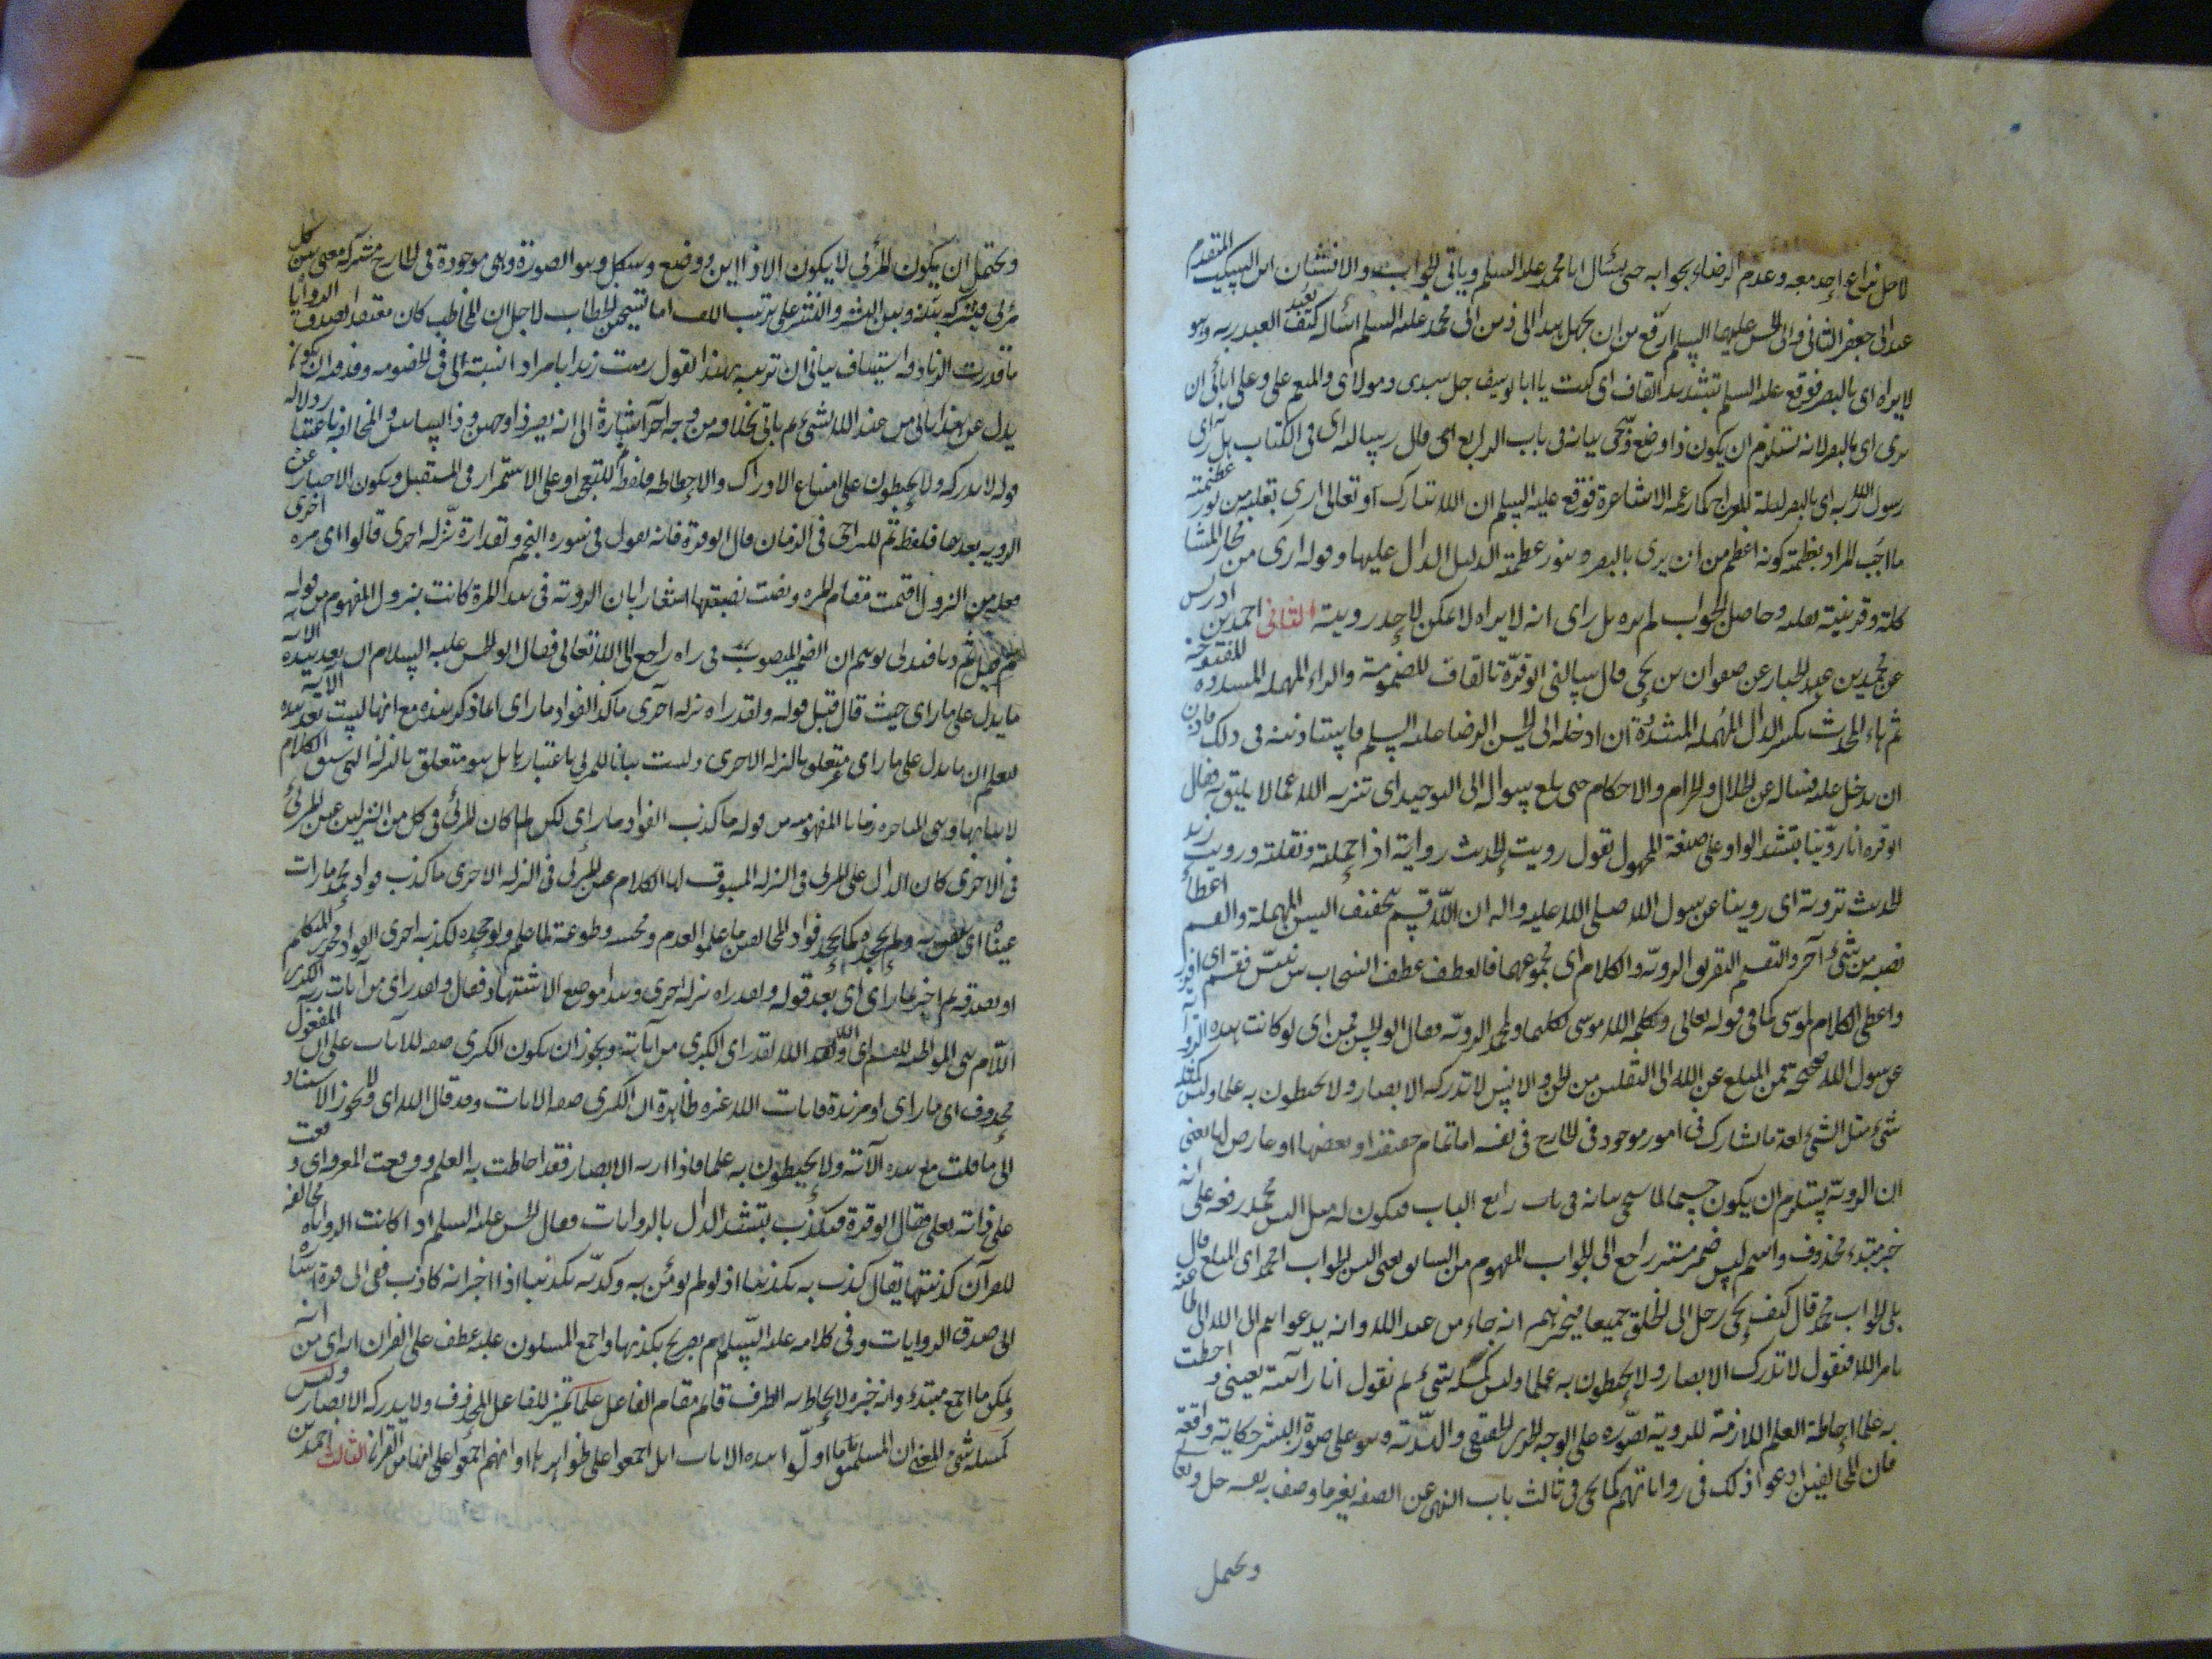 لاجل نزاع واحد معه وعدم الرضاء بجوابه حتى يسأل ابا محمد عليه السلم وياتي الجواب والا فشان ابن السكيت المتقدم
عند ابي جعفر الثاني وابي الحسن عليهما السلم ارفع من ان يجهل هذا الى زمن ابي محمد عليه السلم اسأله كيف يعبد العبد ربه وهو
لا يراه اي بالبصر فوقع عليه السلم بتشديد القاف اي كتب يا ابا يوسف جل سيدي ومولاي والمنعم علي وعلى ابائي ان
يرى اي بالبصر لانه يستلزم ان يكون ذا وضع وسيجي بيانه في باب الرابع قال وسالته اي في الكتاب هل رأى
رسول الله ربه اي بالبصر ليلة المعراج كما زعمه الاشاعرة فوقع عليه السلم ان الله تبارك وتعالى ارى بقلبه من نور عظمته
ما احب المراد بعظمته كونه اعظم من ان يرى بالبصر ونور عظمته الدليل الدال عليها وقوله ارى من
وقرينته بقلبه وحاصل الجواب لم يره بل راى انه لا يراه لا يمكن لاحد رويته الثاني احمد بن ادريس
عن محمد بن عبد الجبار عن صفوان بن يحيى قال سالني ابو قرة بالقاف المضمومة والراء المهملة المشدده المفتوحة
ثم هاء المحدث بكسر الدال المهملة المشددة ان ادخله الى ابي الحسن الرضا عليه السلم فاستاذنته في ذلك فاذن
ان يدخل عليه فساله عن الحلال والحرام والاحكام حتى بلغ سواله الى التوحيد اي تنزيه الله عما لا يليق به فقال
ابو قره انا روينا بتشديد الواو على صيغة المجهول تقول رويت الحديث رواية اذا حملته ونقلته ورويت زيدا
الحديث تروية اي روينا عن رسول الله صلى الله عليه واله ان الله قسم بتخفيف السين المهملة والقسم اعطاء
نصيبه من شيء وآخر والتقسيم التفريق الروية والكلام اي مجموعهما فالعطف عطف انسحاب بين نبيين فقسم اي افرز
واعطى الكلام لموسى كما في قوله تعالى وكلم الله موسى تكليما ولمحمد الروية فقال ابو الحسن فمن اي لو كانت هذه الرواية
عن رسول الله صحيحة فمن المبلغ عن الله الى الثقلين من الجن والانس لا تدركه الابصار ولا يحيطون به علما وليس كمثله
شيء مثل الشيء لغة ما يشارك في امور موجود في الخارج في نفسه اما تمام حقيقته او بعضها او عارض لها يعني
ان الروية يستلزم ان يكون جسما لما سيجي بيانه في باب رابع الباب فيكون له مثل اليس محمد رفعه على انه
خبر مبتدء محذوف واسم ليس ضمير مستتر راجع الى الجواب المفهوم من السابق يعني اليس الجواب محمد اي المبلغ قال
بلى الجواب محمد قال كيف يجي رجل الى الخلق جميعا فيخبرهم انه جاء من عند الله وانه يدعوهم الى الله
بامر الله فيقول لا تدركه الابصار ولا يحيطون به علما وليس كمثله شيء ثم يقول انا رايته بعيني واحطت
به علما احاطة العلم اللازمة للروية تصوره على الوجه الجزي الحقيقي والبتة وهو على صورة البشر حكاية واقعة
فان المخالفين ادعوا ذلك في رواياتهم كما يجي في ثالث باب النهي عن الصفة بغير ما وصف به نفسه جل وتعالى
ويحتمل
ويحتمل ان يكون المرئي لا يكون الا ذا اين ووضع وشكل وهو الصورة وهي موجودة في الخارج مشتركة معنى بين كل
مرئي فيشترك بينه وبين البشر والنشر على ترتيب اللف اما تستحيون الخطاب لاجل ان المخاطب كان معتقدا لصدق الروايات
ما قدرت الزنادقة استيناف بياني ان ترميه بهذا تقول رميت زيدا بامر اذا نسبته الى في الخصومه وقذفته ان يكون
ياتي من عند الله بشيء ثم ياتي بخلافه من وجه آخر اشارة الى انه يصير ذا وجهين وذا لسانين والمخالفة باعتبار دلالة
قوله لا تدركه ولا يحيطون على امتناع الادراك والاحاطة فلفظ ثم للتعجب او على الاستمرار في المستقبل ويكون الاخبار عن
الرويه بعدها فلفظ ثم للتراخي في الزمان قال ابو قرة فانه يقول في سوره النجم ولقد رآه نزلة اخرى قالوا اي مرة اخرى
فعله من النزول اقيمت مقام المره ونصبت نصبتها اشعارا بان الروية في هذه المرة كانت بنزول المفهوم من قوله
ثم دنا فتدلى توهم ان الضمير المنصوب في راه راجع الى الله تعالى فقال ابو الحسن عليه السلام ان بعد هذه الاية
ما يدل على ما راى حيث قال قبل قوله ولقد راه نزلة اخرى ما كذب الفواد ما راى انما ذكر هذه مع انها ليست بعد هذه الاية
ليعلم ان ما يدل على ما راى متعلق بالنزلة الاخرى وليست بيانا للمرئي باعتبارها بل هو متعلق بالنزلة التي سبق الكلام
لبيانها وهي المتاخرة زمانا المفهومه من قوله ما كذب الفواد ما راى لكن لما كان المرئي في كل من النزلتين عين المرئي
في الاخرى كان الدال على المرئي في النزلة المسبوق لها الكلام عين المرئي في النزلة الاخرى ما كذب فواد محمد ما رات
عيناه اي يقن به ولم يجحده كما يجحد فواد المخالفين ما علموا لعدم ولو جحده لكذبه اخرى الفواد
ثم اخبر بما راى اي بعد قوله ولقد راه نزلة اخرى وهذا موضع الاستشهاد فقال ولقد راى من آيات ربه الكبرى
اللام هي الموطئة للقسم اي والله لقد راى الكبرى من آياته ويجوز ان يكون الكبرى صفه للايات على ان المفعول
محذوف اي ما راى او مزيدة فايات الله غيره ظاهرة ان الكبرى صفه الايات وقد قال الله اي ولا يجوز الاستناد
الى ما قلت مع هذه الآية ولا يحيطون به علما فاذا راته الابصار فقد احاطت به العلم ووقعت المعرفة اي وقعت
على ذاته تعالى فقال ابو قرة فتكذب بتشديد الدال بالروايات فقال ابو الحسن عليه السلم اذا كانت الروايات مخالفة
للقرآن كذبتها يقال كذب به تكذيبا اذا لم يؤمن به وكذبه تكذيبا اذا اخبر انه كاذب ففي ابي قرة اشارة
الى صدق الروايات وفي كلامه عليه السلام تصريح بكذبها وما اجمع المسلمون عليه عطف على القران انه اي من انه
ويمكن ما اجمع مبتدء وانه خبره لا يحاط به الظرف قائم مقام الفاعل علما تميز للفاعل المحذوف ولا يدركه الابصار وليس
كمثله شيء المعنى ان المسلمين ما اولوا هذه الايات بل اجمعوا على ظواهرها او انهم اجمعوا على انها من القرآن الثالث احمد بن